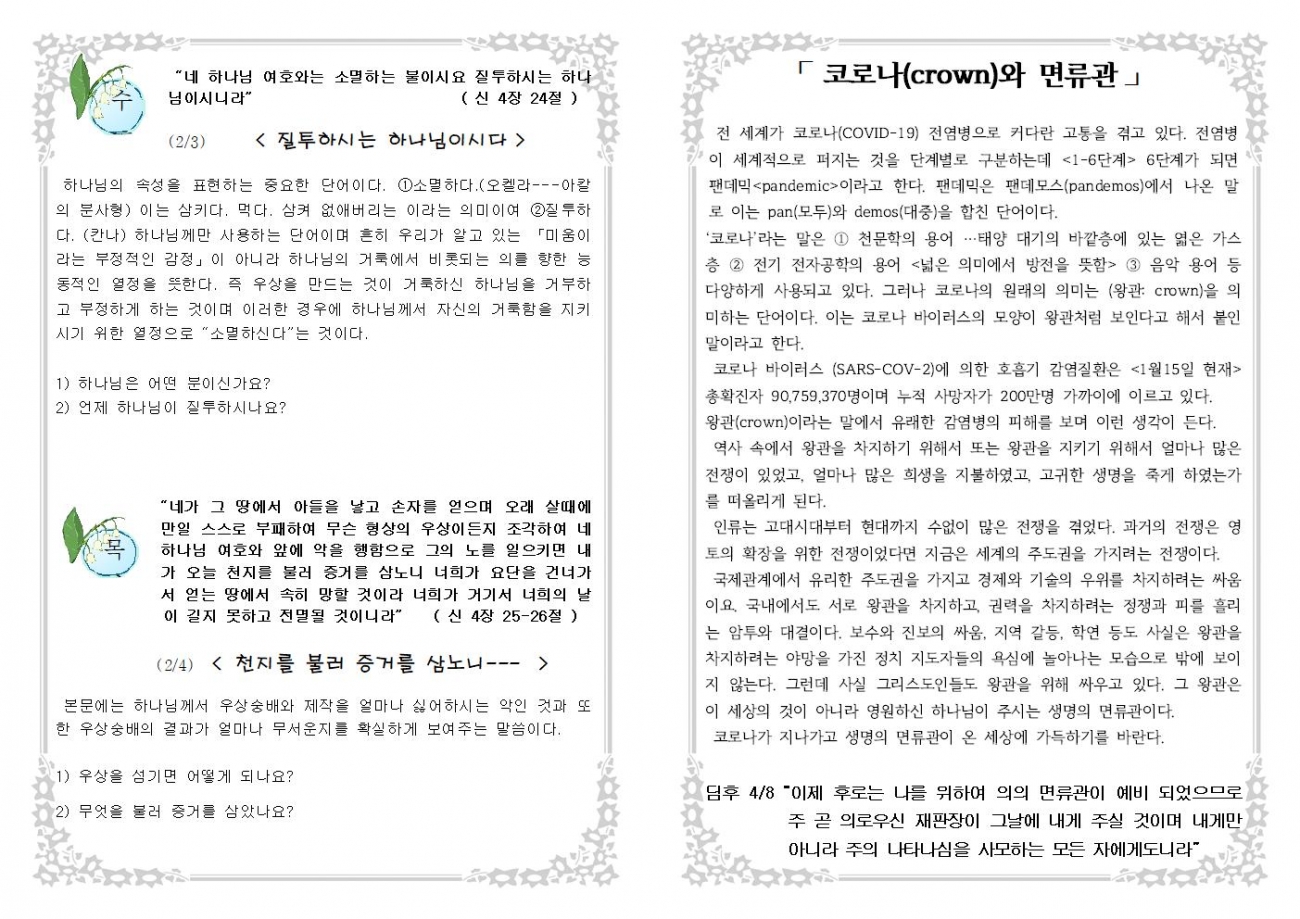 수
“네 하나님 여호와는 소멸하는 불이시요 질투하시는 하나
님이시니라” ( 신 4장 24절 )
(2/3) < 질투하시는 하나님이시다 >
하나님의 속성을 표현하는 중요한 단어이다. ①소멸하다.(오켈라---아칼
의 분사형) 이는 삼키다. 먹다. 삼켜 없애버리는 이라는 의미이여 ②질투하
다. (칸나) 하나님께만 사용하는 단어이며 흔히 우리가 알고 있는 「미움이
라는 부정적인 감정」이 아니라 하나님의 거룩에서 비롯되는 의를 향한 능
동적인 열정을 뜻한다. 즉 우상을 만드는 것이 거룩하신 하나님을 거부하
고 부정하게 하는 것이며 이러한 경우에 하나님께서 자신의 거룩함을 지키
시기 위한 열정으로 “소멸하신다”는 것이다.
1) 하나님은 어떤 분이신가요?
2) 언제 하나님이 질투하시나요?
목
“네가 그 땅에서 아들을 낳고 손자를 얻으며 오래 살때에
만일 스스로 부패하여 무슨 형상의 우상이든지 조각하여 네
하나님 여호와 앞에 악을 행함으로 그의 노를 일으키면 내
가 오늘 천지를 불러 증거를 삼노니 너희가 요단을 건너가
서 얻는 땅에서 속히 망할 것이라 너희가 거기서 너희의 날
이 길지 못하고 전멸될 것이니라” ( 신 4장 25-26절 )
(2/4) < 천지를 불러 증거를 삼노니--- >
본문에는 하나님께서 우상숭배와 제작을 얼마나 싫어하시는 악인 것과 또
한 우상숭배의 결과가 얼마나 무서운지를 확실하게 보여주는 말씀이다.
1) 우상을 섬기면 어떻게 되나요?
2) 무엇을 불러 증거를 삼았나요?
「 코로나(crown)와 면류관 」
전 세계가 코로나(COVID-19) 전염병으로 커다란 고통을 겪고 있다. 전염병
이 세계적으로 퍼지는 것을 단계별로 구분하는데 <1-6단계> 6단계가 되면
팬데믹<pandemic>이라고 한다. 팬데믹은 팬데모스(pandemos)에서 나온 말
로 이는 pan(모두)와 demos(대중)을 합친 단어이다.
‘코로나’라는 말은 ① 천문학의 용어 …태양 대기의 바깥층에 있는 엷은 가스
층 ② 전기 전자공학의 용어 <넓은 의미에서 방전을 뜻함> ③ 음악 용어 등
다양하게 사용되고 있다. 그러나 코로나의 원래의 의미는 (왕관: crown)을 의
미하는 단어이다. 이는 코로나 바이러스의 모양이 왕관처럼 보인다고 해서 붙인
말이라고 한다.
코로나 바이러스 (SARS-COV-2)에 의한 호흡기 감염질환은 <1월15일 현재>
총확진자 90,759,370명이며 누적 사망자가 200만명 가까이에 이르고 있다.
왕관(crown)이라는 말에서 유래한 감염병의 피해를 보며 이런 생각이 든다.
역사 속에서 왕관을 차지하기 위해서 또는 왕관을 지키기 위해서 얼마나 많은
전쟁이 있었고, 얼마나 많은 희생을 지불하였고, 고귀한 생명을 죽게 하였는가
를 떠올리게 된다.
인류는 고대시대부터 현대까지 수없이 많은 전쟁을 겪었다. 과거의 전쟁은 영
토의 확장을 위한 전쟁이었다면 지금은 세계의 주도권을 가지려는 전쟁이다.
국제관계에서 유리한 주도권을 가지고 경제와 기술의 우위를 차지하려는 싸움
이요, 국내에서도 서로 왕관을 차지하고, 권력을 차지하려는 정쟁과 피를 흘리
는 암투와 대결이다. 보수와 진보의 싸움, 지역 갈등, 학연 등도 사실은 왕관을
차지하려는 야망을 가진 정치 지도자들의 욕심에 놀아나는 모습으로 밖에 보이
지 않는다. 그런데 사실 그리스도인들도 왕관을 위해 싸우고 있다. 그 왕관은
이 세상의 것이 아니라 영원하신 하나님이 주시는 생명의 면류관이다.
코로나가 지나가고 생명의 면류관이 온 세상에 가득하기를 바란다.
딤후 4/8 “이제 후로는 나를 위하여 의의 면류관이 예비 되었으므로
주 곧 의로우신 재판장이 그날에 내게 주실 것이며 내게만
아니라 주의 나타나심을 사모하는 모든 자에게도니라”